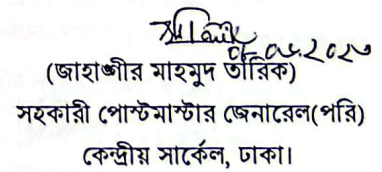 ০৮.০৬.২০২৩
(জাহাঙ্গীর মাহমুদ তারিক)
সহকারী পোস্টমাস্টার জেনারেল(পরি)
কেন্দ্রীয় সার্কেল, ঢাকা।